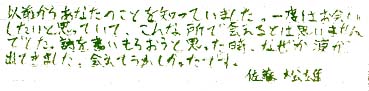 以前からあなたのことを知っていました。一度はお会い
したいと思っていて、こんな所で会えるとは思いません
でした。詩を書いてもらおうと思った時、なぜか涙が
出てきました。会えてうれしかったです。
佐藤